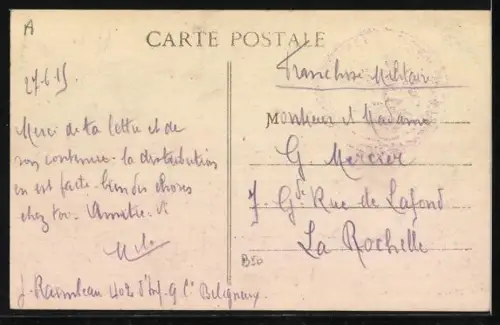 A
CARTE POSTALE
27.6.15
Franchise Militaire
Merci de ta lettre et de
son contenu - la distribution
en est faite. bien des choses
chez toi. Amitié.
Monsieur et Madame
G. Mercier
7. Gde Rue de Lafond
La Rochelle
B50
J. Raimbeau 402 d'Inf. 9 Cie